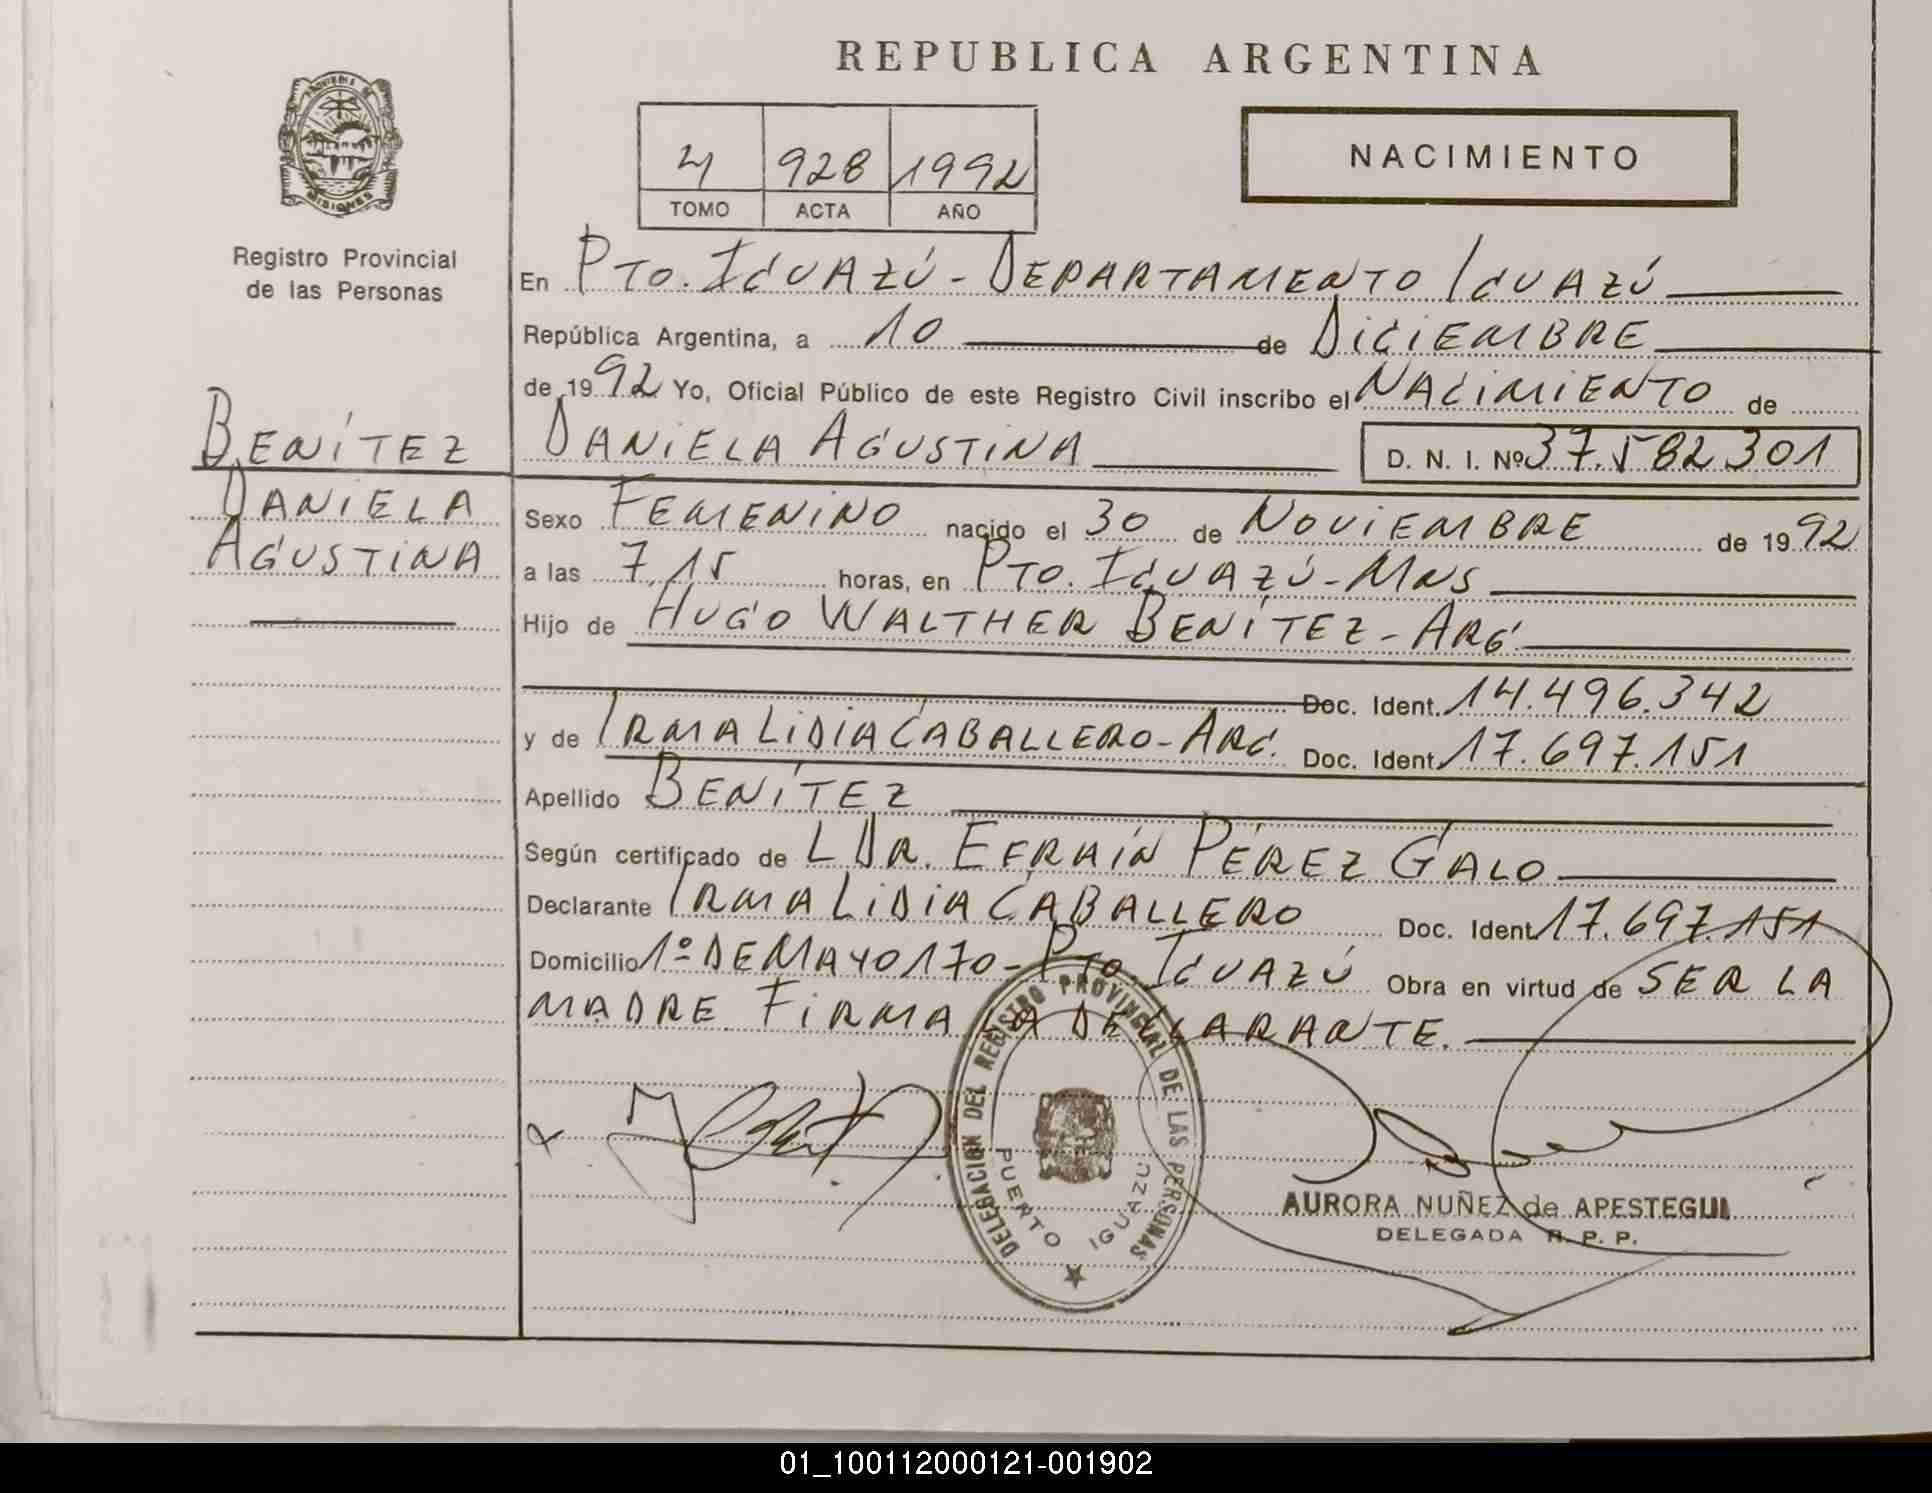 REPUBLICA ARGENTINA
PROVINCIA DE
MISIONES
4 928 1992
TOMO ACTA AÑO
NACIMIENTO
Registro Provincial
de las Personas
En PTO. IGUAZÚ - DEPARTAMENTO IGUAZÚ
República Argentina, a 10 de DICIEMBRE
de 1992 Yo, Oficial Público de este Registro Civil inscribo el NACIMIENTO de
DANIELA AGUSTINA D. N. I. Nº 37.582.301
BENÍTEZ
DANIELA
AGUSTINA
Sexo FEMENINO nacido el 30 de NOVIEMBRE de 1992
a las 7,15 horas, en PTO. IGUAZÚ - MNS
Hijo de HUGO WALTHER BENÍTEZ - ARG.
Doc. Ident. 14.496.342
y de IRMA LIDIA CABALLERO - ARG. Doc. Ident. 17.697.151
Apellido BENÍTEZ
Según certificado de L DR. EFRAÍN PÉREZ GALO
Declarante IRMA LIDIA CABALLERO Doc. Ident. 17.697.151
Domicilio 1º DE MAYO 170 - PTO IGUAZÚ Obra en virtud de SER LA
MADRE FIRMA LA DECLARANTE.
DELEGACION DEL REGISTRO PROVINCIAL DE LAS PERSONAS
PUERTO IGUAZU
AURORA NUÑEZ de APESTEGUI
DELEGADA R. P. P.
01_100112000121-001902